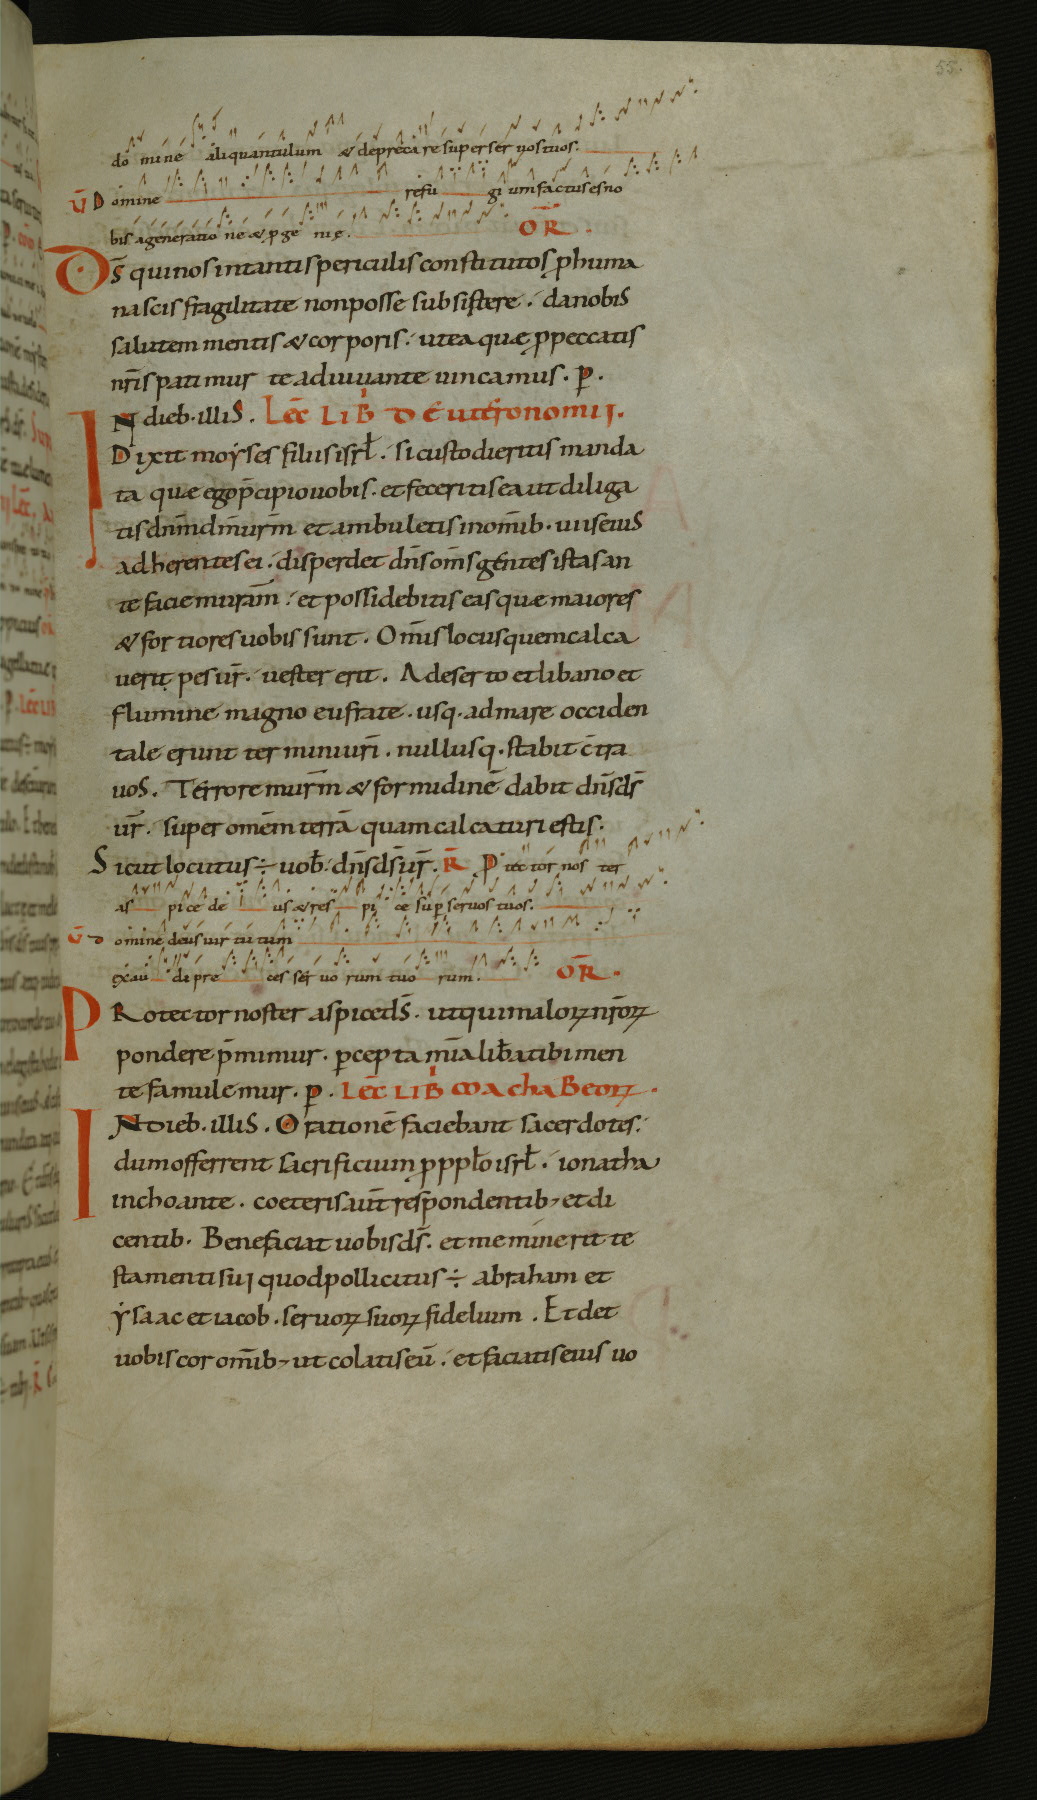 55.
domine aliquantulum & deprecare super seruos tuos.
V̄ Domine refugium factus es no
bis a generatione & pgenię. OR̄.
D̄s qui nos in tantis periculis constitutos p huma
na scis fragilitate non posse subsistere. da nobis
salutem mentis & corporis. ut ea quæ p peccatis
nr̄is patimur te adiuuante uincamus. P.
IN dieb. illis. Lec̄ LIB̄ DEUTERONOMII.
Dixit moyses filiis isrł. si custodieritis manda
ta quæ ego p̄cipio uobis. et feceritis ea ut diliga
tis dn̄m dm̄ ur̄m et ambuletis in om̄ib. uiis eius
adherentes ei. disperdet dn̄s om̄s gentes istas an
te faciem uram̄. et possidebitis eas quæ maiores
& fortiores uobis sunt. Om̄is locus quem calca
uerit pes ur̄. uester erit. A deserto et libano et
flumine magno eufrate. usq. ad mare occiden
tale erunt termini uri̅. nullusq. stabit c̄tra
uos. Terrorem ur̄m & formidinē dabit dn̄s ds̄
ur̄. super omēm terrā quam calcaturi estis.
Sicut locutus ÷ uob̄. dn̄s ds̄ ur̄. R̄ Ptector nos ter
aspice deus & respice sup seruos tuos.
V̄ domine deus uirtutum
exaudi preces seruorum tuorum. OR̄.
PRotector noster aspice ds̄. ut qui maloꝝ nr̄oꝝ
pondere p̄mimur. pcepta mīa lib̄a tibi men
te famulemur. P. Lec̄ LIB̄ MAchaBeoꝝ.
INdieb. illis. Orationē faciebant sacerdotes.
dum offerrent sacrificium p ppło isrł. ionatha
inchoante. coeteris aut̄ respondentib, et di
centib. Benefaciat uobis ds̄. et meminerit te
stamenti sui quod pollicitus ÷ abraham et
ysaac et iacob. seruoꝝ suoꝝ fidelium. Et det
uobis cor om̄ib, ut colatis eū. et faciatis eius uo